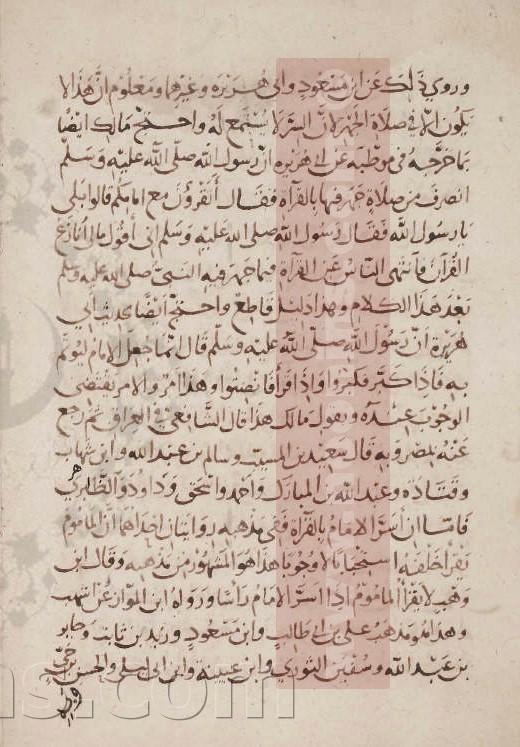 وروي ذلك عن ابن مسعود وابي هريرة وغيرهما ومعلوم ان هذا لا
يكون الا في صلاة الجهر لان السر لا يستمع له واحتج مالك ايضا
بما خرجه في موطئه عن ابي هريرة ان رسول الله صلى الله عليه وسلم
انصرف من صلاة جهر فيها بالقراة فقال أتقرؤن مع امامكم قالوا بلى
يا رسول الله فقال رسول الله صلى الله عليه وسلم اني أقول مالي أنازع
القرآن فانتهى الناس عن القراة فيما جهر فيه النبي صلى الله عليه وسلم
بعد هذا الكلام وهذا دليل قاطع واحتج ايضا بحديث ابي
هريرة ان رسول الله صلى الله عليه وسلم قال انما جعل الامام ليؤتم
به فاذا كبر فكبروا واذا قرأ فانصتوا وهذا أمر والامر يقتضي
الوجوب عنده وبقول مالك هذا قال الشافعي في العراق ثم رجع
عنه بمصر وبه قال سعيد بن المسيب وسالم بن عبد الله وابن شهاب
وقتادة وعبد الله بن المبارك واحمد واسحق وداود الظاهري
فاما ان أسر الامام بالقراة ففي مذهبه روايتان احداهما أن الماموم
يقرأ خلفه استحبابا لا وجوبا هذا هو المشهور من مذهبه وقال ابن
وهب لا يقرأ الماموم اذا أسر الامام رأسا ورواه ابن المواز عن اشهب
وهذا هو مذهب علي بن ابي طالب وابن مسعود وزيد بن ثابت وجابر
بن عبد الله وسفين الثوري وابن عيينة وابن ابي ليلى والحسن بن حي